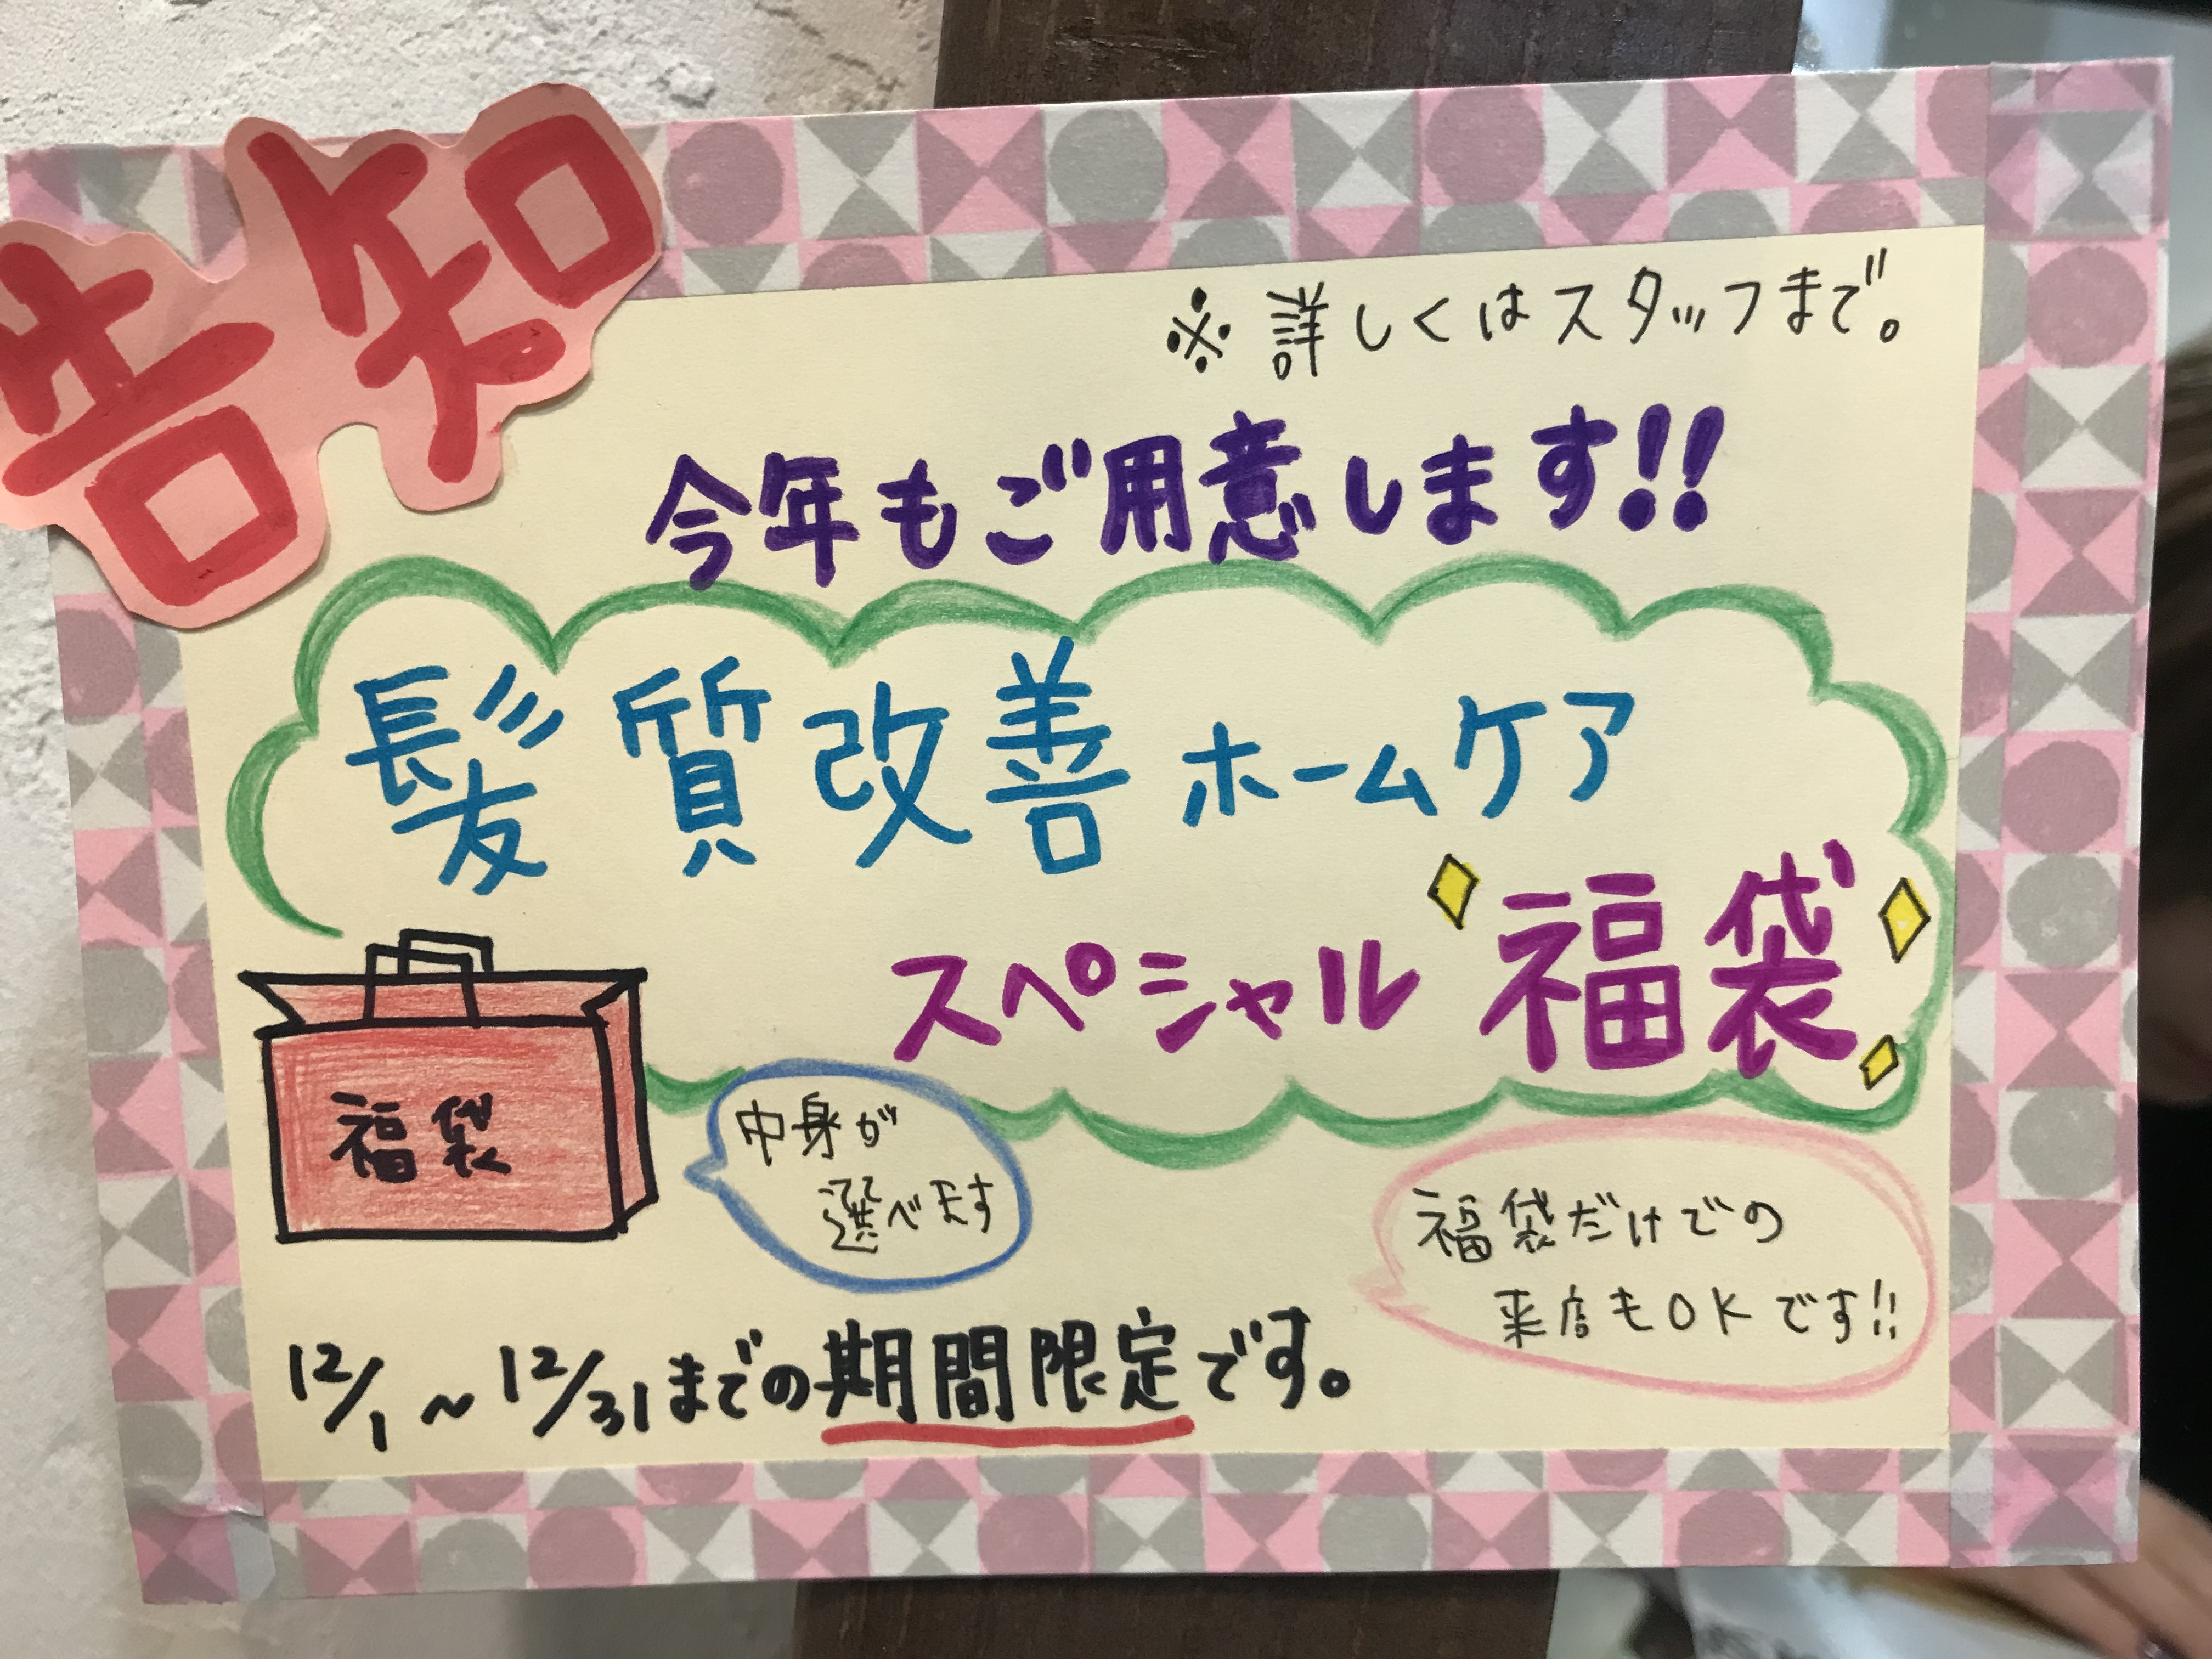 告知
※詳しくはスタッフまで。
今年もご用意します!!
髪質改善ホームケア
スペシャル福袋
福袋
中身が
選べます
福袋だけでの
来店もOKです!!
12/1~12/31までの期間限定です。